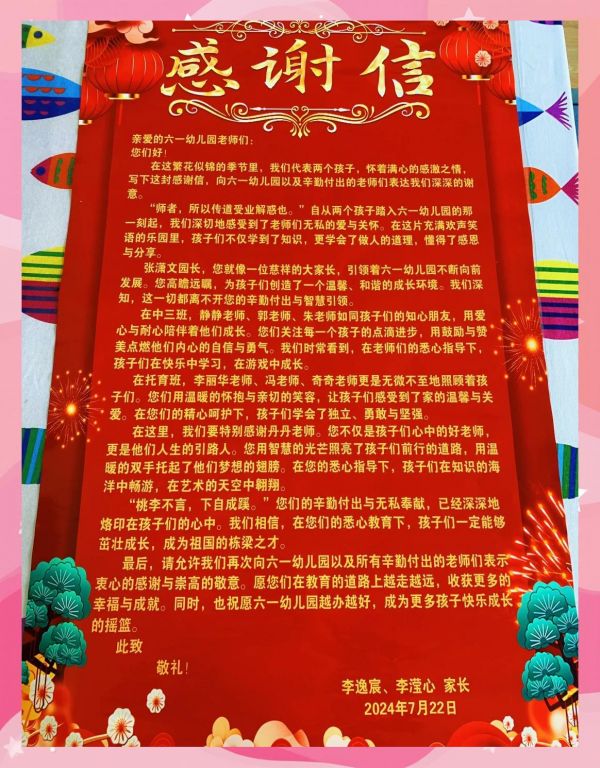 感谢信
亲爱的六一幼儿园老师们：
您们好！
在这繁花似锦的季节里，我们代表两个孩子，怀着满心的感激之情，
写下这封感谢信，向六一幼儿园以及辛勤付出的老师们表达我们深深的谢
意。
“师者，所以传道受业解惑也。”自从两个孩子踏入六一幼儿园的那
一刻起，我们深切地感受到了老师们无私的爱与关怀。在这片充满欢声笑
语的乐园里，孩子们不仅学到了知识，更学会了做人的道理，懂得了感恩
与分享。
张潇文园长，您就像一位慈祥的大家长，引领着六一幼儿园不断向前
发展。您高瞻远瞩，为孩子们创造了一个温馨、和谐的成长环境。我们深
知，这一切都离不开您的辛勤付出与智慧引领。
在中三班，静静老师、郭老师、朱老师如同孩子们的知心朋友，用爱
心与耐心陪伴着他们成长。您们关注每一个孩子的点滴进步，用鼓励与赞
美点燃他们内心的自信与勇气。我们时常看到，在老师们的悉心指导下，
孩子们在快乐中学习，在游戏中成长。
在托育班，李丽华老师、冯老师、奇奇老师更是无微不至地照顾着孩
子们。您们用温暖的怀抱与亲切的笑容，让孩子们感受到了家的温馨与关
爱。在您们的精心呵护下，孩子们学会了独立、勇敢与坚强。
在这里，我们要特别感谢丹丹老师。您不仅是孩子们心中的好老师，
更是他们人生的引路人。您用智慧的光芒照亮了孩子们前行的道路，用温
暖的双手托起了他们梦想的翅膀。在您的悉心指导下，孩子们在知识的海
洋中畅游，在艺术的天空中翱翔。
“桃李不言，下自成蹊。”您们的辛勤付出与无私奉献，已经深深地
烙印在孩子们的心中。我们相信，在您们的悉心教育下，孩子们一定能够
茁壮成长，成为祖国的栋梁之才。
最后，请允许我们再次向六一幼儿园以及所有辛勤付出的老师们表示
衷心的感谢与崇高的敬意。愿您们在教育的道路上越走越远，收获更多的
幸福与成就。同时，也祝愿六一幼儿园越办越好，成为更多孩子快乐成长
的摇篮。
此致
敬礼！
李逸宸、李滢心 家长
2024年7月22日